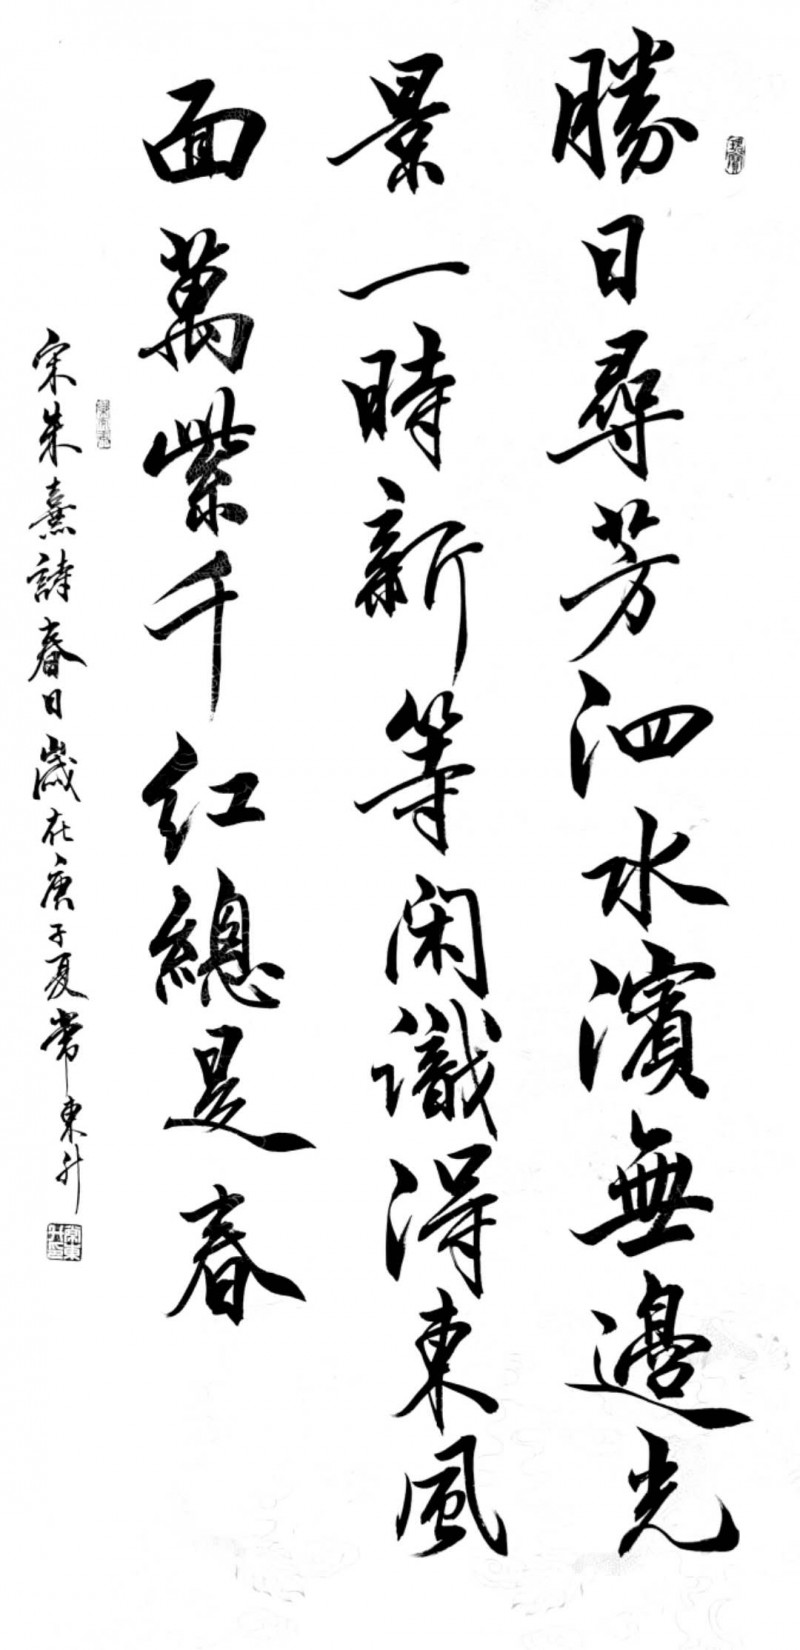 勝日尋芳泗水濱無邊光
景一時新等閑識得東風
面萬紫千紅總是春
宋朱熹詩春日歲在庚子夏常東升
常東升印